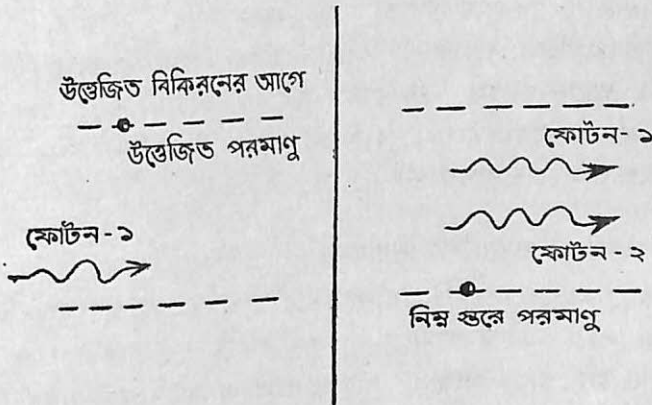 উত্তেজিত বিকিরনের আগে
উত্তেজিত পরমাণু
ফোটন-১
ফোটন-১
ফোটন-২
নিম্ন স্তরে পরমাণু